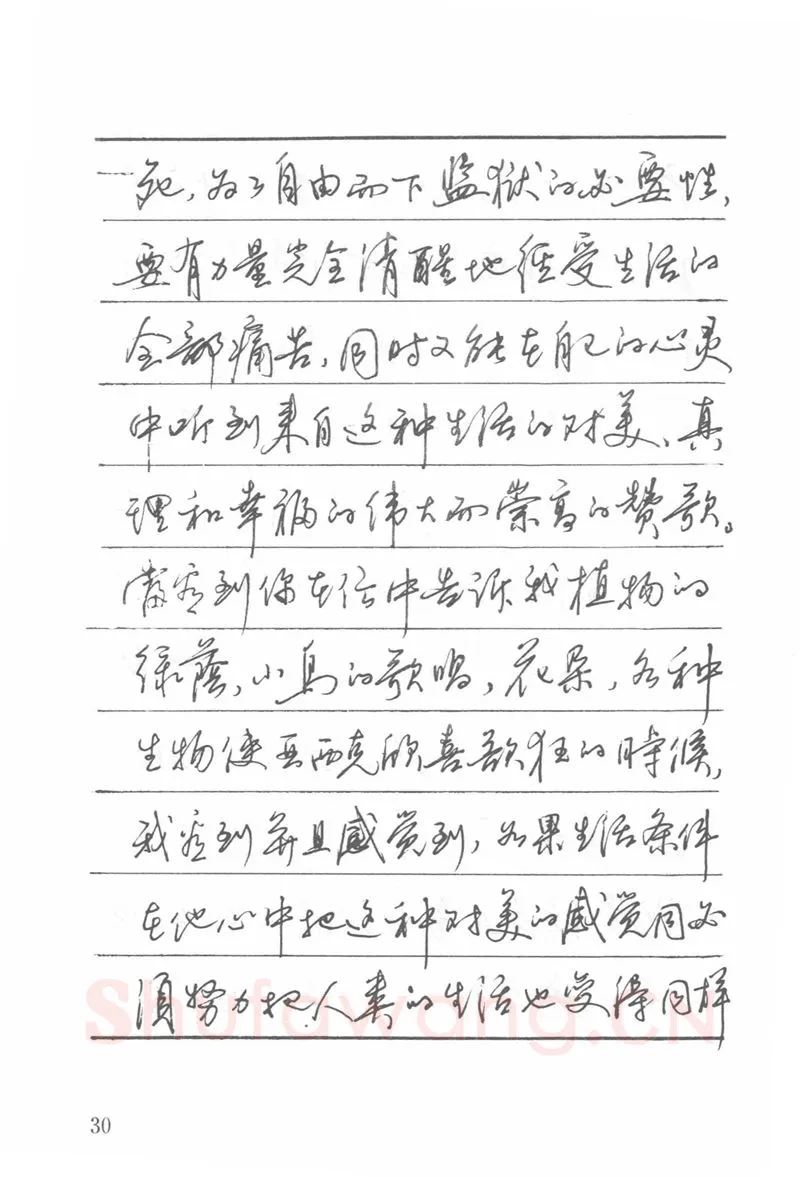 一死，为了自由而下监狱的必要性，
要有力量完全清醒地经受生活的
全部痛苦，同时又能在自己的心灵
中听到来自这种生活的对美、真
理和幸福的伟大而崇高的赞歌。
当看到你在信中告诉我植物的
绿荫，小鸟的歌唱，花朵，各种
生物使亚西克欣喜欲狂的时候，
我看到并且感觉到，如果生活条件
在他心中把这种对美的感觉同必
须努力把人类的生活也变得同样
Shufawang.CN
30